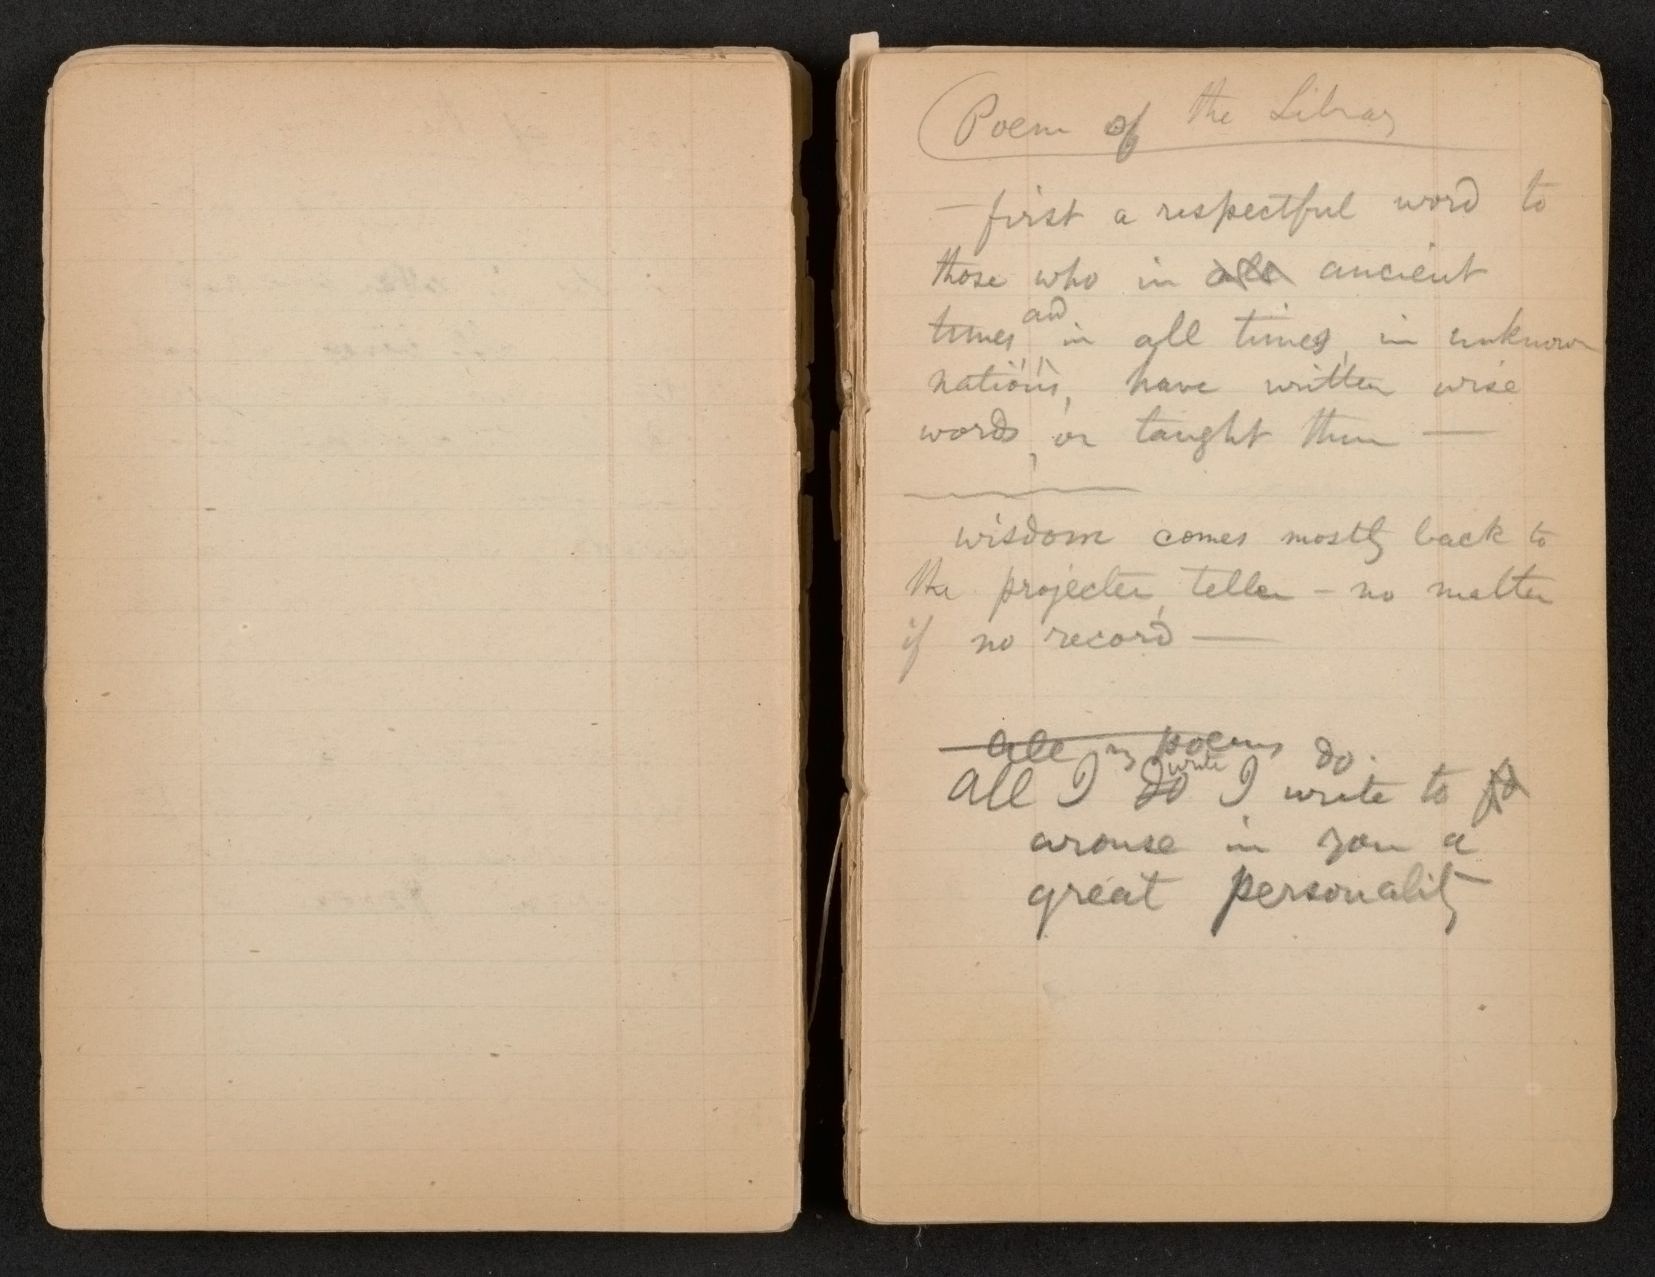 Poem of the Library
— first a respectful word to
those who in all ancient
times and in all times, in unknown
nations, have written wise
words, or taught them —
wisdom comes mostly back to
the projecter, teller – no matter
if no record —
all my poems do.
All I do write I write to
arouse in you a
great personality